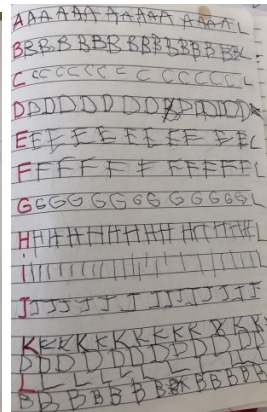 AAAAA AAAAAAAL
BBBBBBBBBBBBBBBL
CCCCCCC CCCCCCL
DDDDDDDDDDDDDDD
EEEEEEEEEEEEL
FFFFFFFFFFFFL
GGGGGGGGGGGGL
HHHHHHHHHHHHHL
iIIIIIIIIIIIIIIIL
JJJJJJJJJJJJJJL
KKKKKKKKKKKKK
DDDDDDDDDDDD
LLLLLLLLLL
BBBBBBBBBBBB